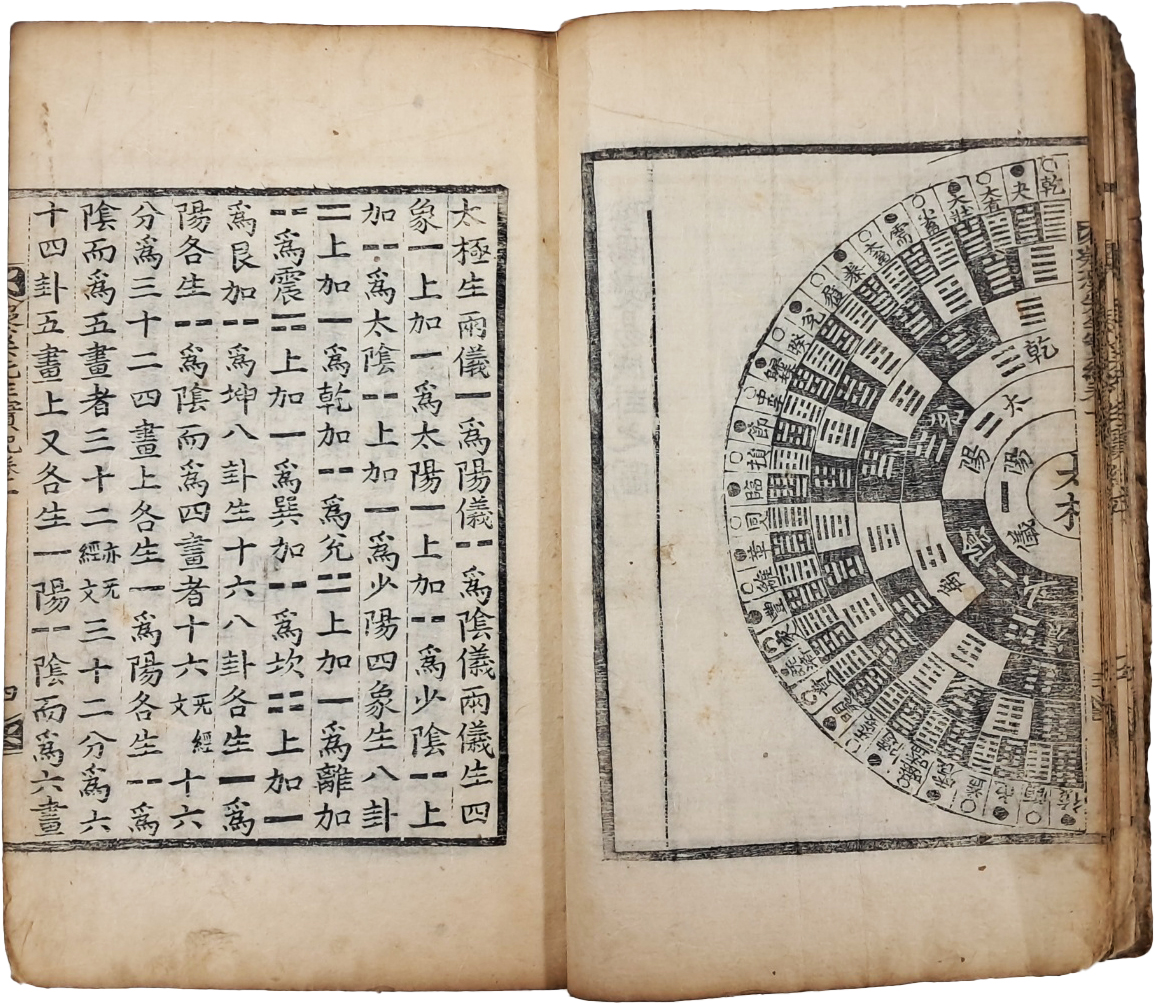 乾
夬
大有
大壯
小畜
需
大畜
泰
履
兌
睽
節
損
臨
同
革
離
豐
乾
太
陽
陽
儀
太極
太極生兩儀⚊爲陽儀⚋爲陰儀兩儀生四
象⚊上加⚊爲太陽⚊上加⚋爲少陰⚋上
加⚋爲太陰⚋上加⚊爲少陽四象生八卦
⚌上加⚊爲乾加⚋爲兌⚍上加⚊爲離加
⚋爲震⚎上加⚊爲巽加⚋爲坎⚏上加⚊
爲艮加⚋爲坤八卦生十六八卦各生⚊爲
陽各生⚋爲陰而爲四畫者十六无經文十六
分爲三十二四畫上各生⚊爲陽各生⚋爲
陰而爲五畫者三十二亦无經文三十二分爲六
十四卦五畫上又各生⚊陽⚋陰而爲六畫